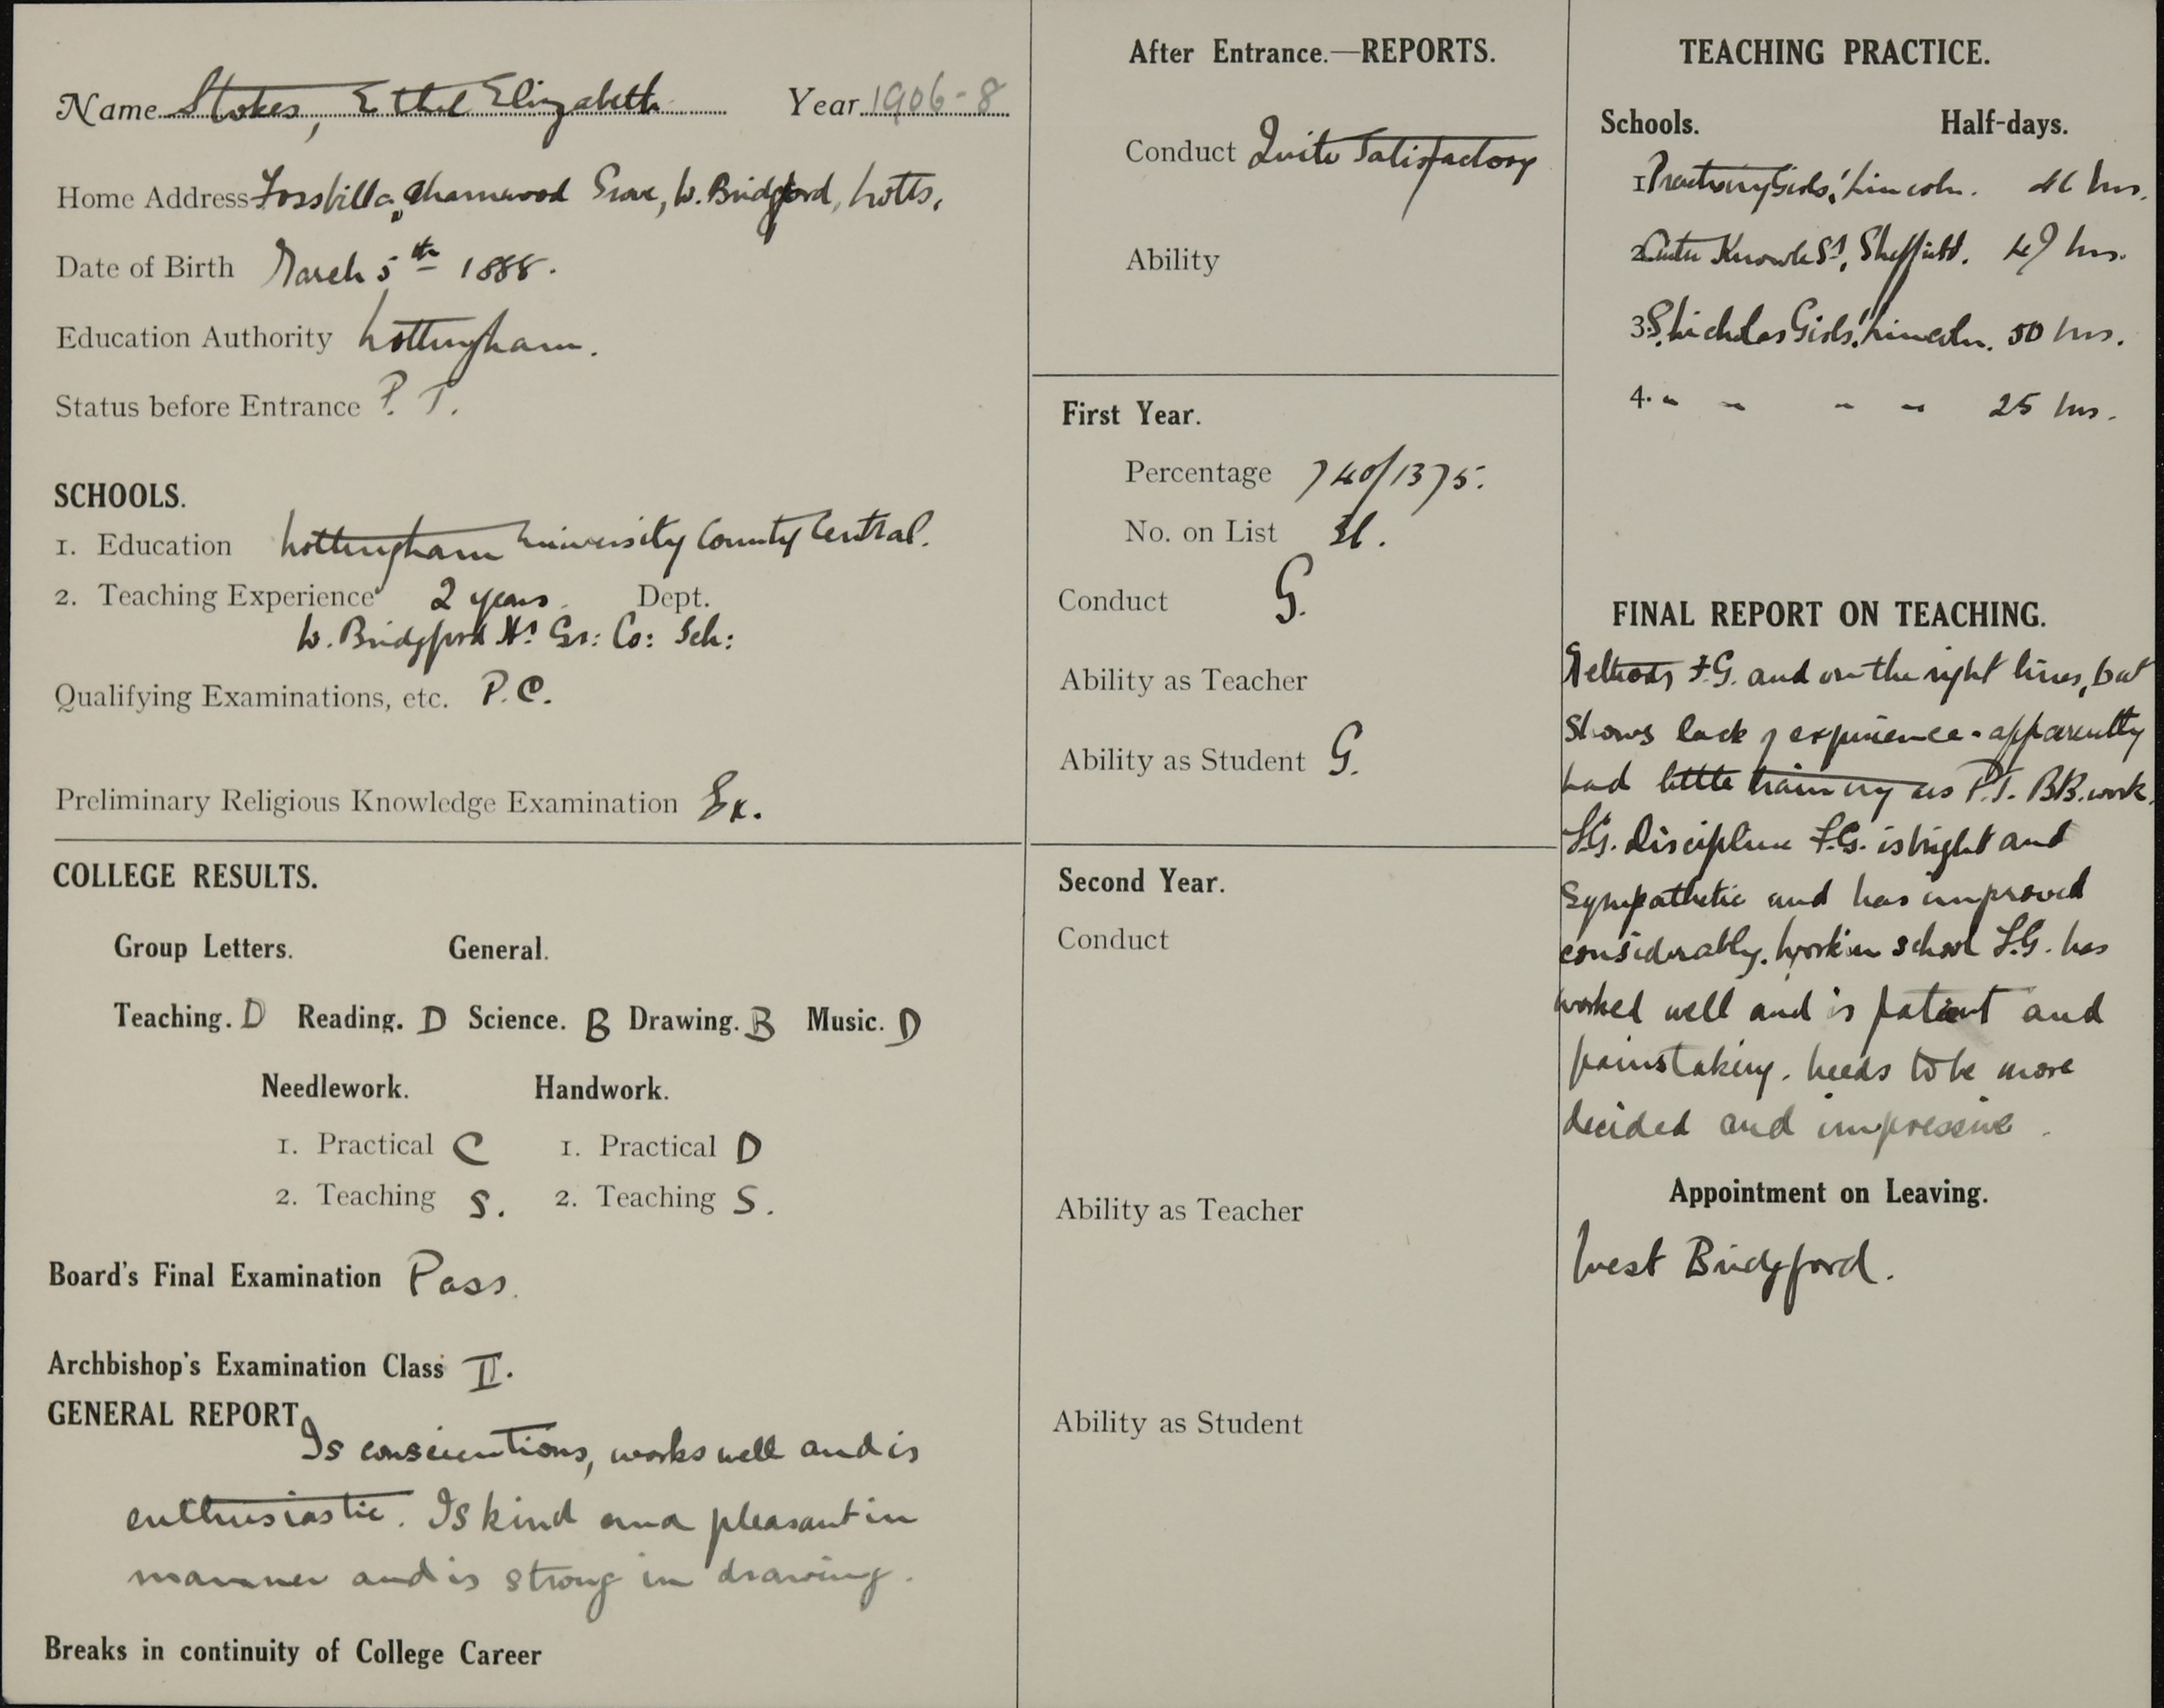 Name Stokes, Ethel Elizabeth Year 1906-8
Home Address Fossvilla, Charnwood Grove, W. Bridgford, Notts,
Date of Birth March 5th 1888.
Education Authority Nottingham.
Status before Entrance P. T.
SCHOOLS.
1. Education Nottingham University County Central.
2. Teaching Experience 2 years. Dept.
W. Bridgford Hr Gr: Co: Sch:
Qualifying Examinations, etc. P.C.
Preliminary Religious Knowledge Examination Ex.
COLLEGE RESULTS.
Group Letters. General.
Teaching. D Reading. D Science. B Drawing. B Music. D
Needlework. Handwork.
1. Practical C 1. Practical D
2. Teaching S. 2. Teaching S.
Board's Final Examination Pass.
Archbishop's Examination Class II.
GENERAL REPORT
Is conscientious, works well and is
enthusiastic. Is kind and pleasant in
manner and is strong in drawing.
Breaks in continuity of College Career
After Entrance.—REPORTS.
Conduct Quite Satisfactory
Ability
First Year.
Percentage 740/1375.
No. on List
Conduct G.
Ability as Teacher
Ability as Student G.
Second Year.
Conduct
Ability as Teacher
Ability as Student
TEACHING PRACTICE.
Schools. Half-days.
1. Practising Girls', Lincoln. hrs.
2. Knowle St, Sheffield. 47 hrs.
3. S. Nicholas Girls', Lincoln. 50 hrs.
4. " " " " 25 hrs.
FINAL REPORT ON TEACHING.
Methods F.G. and on the right lines, but
shows lack of experience - apparently
had little training as P.T. BB. work
F.G. Discipline F.G. is bright and
sympathetic and has improved
considerably. Work in school F.G. has
worked well and is patient and
painstaking. Needs to be more
decided and impressive.
Appointment on Leaving.
West Bridgford.